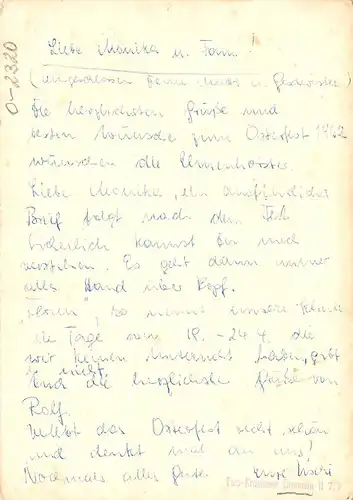 0-2320
Liebe Monika u. Fam.
(eingeschlossen Deine u.
Die herzlichsten Grüße und
besten Wünsche zum Osterfest 1962
wünschen alle
Liebe Monika, ein ausführlicher
Brief folgt nach dem Fest
sicherlich kannst Du mich
verstehen. Es geht dann immer
alles Hand über Kopf.
so nennt unsere
die Tage vom 18. - 24.4. die
wir keinen Unterricht haben, gibt
nicht.
Und die herzlichste Grüße von
Rolf.
Verlebt das Osterfest recht schön
und denkt mal an uns!
Nochmals alles Gute eure